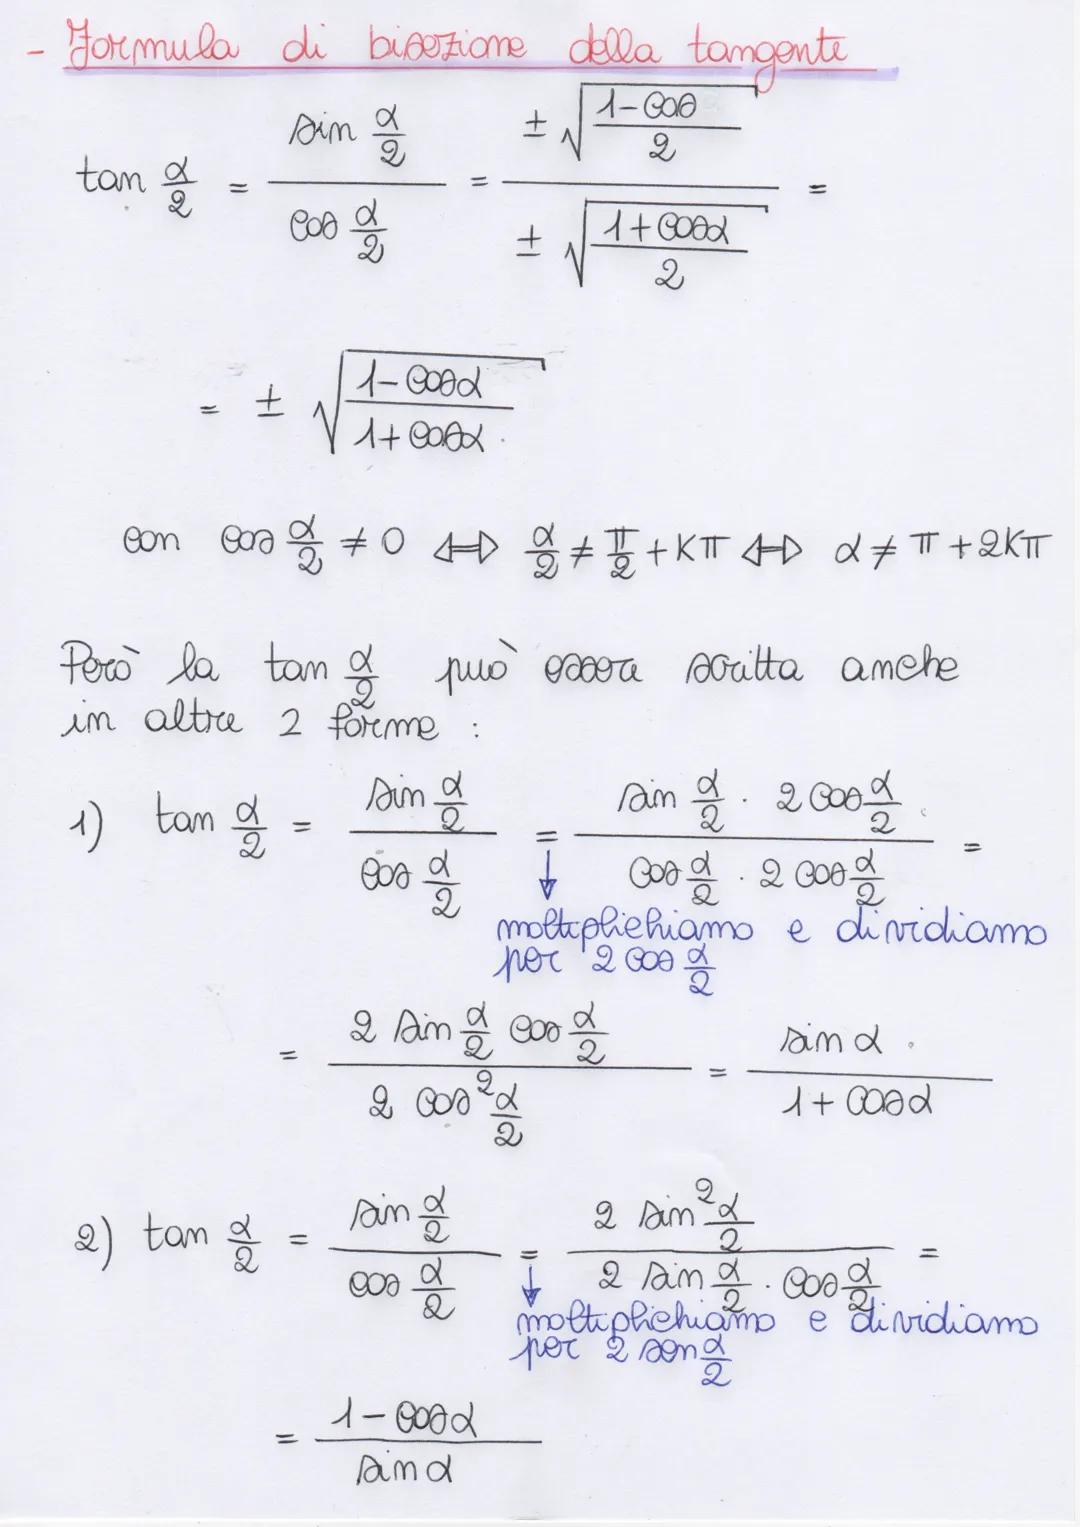 - Formula di bisezione della tangente
tan α/2 = sin α/2 / cos α/2 = ± √((1-cos)/2) / ± √((1+cosα)/2) =
= ± √((1-cosα)/(1+cosα))
con cos α/2 ≠ 0 ⇔ α/2 ≠ π/2 + Kπ ⇔ α ≠ π + 2Kπ
Però la tan α/2 può essere scritta anche
in altre 2 forme :
1) tan α/2 = sin α/2 / cos α/2 = (sin α/2 · 2 cos α/2) / (cos α/2 · 2 cos α/2) =
moltiplichiamo e dividiamo
per 2 cos α/2
= (2 sin α/2 cos α/2) / (2 cos² α/2) = sin α / (1 + cosα)
2) tan α/2 = sin α/2 / cos α/2 = (2 sin² α/2) / (2 sin α/2 · cos α/2) =
moltiplichiamo e dividiamo
per 2 sen α/2
= (1 - cosα) / sin α